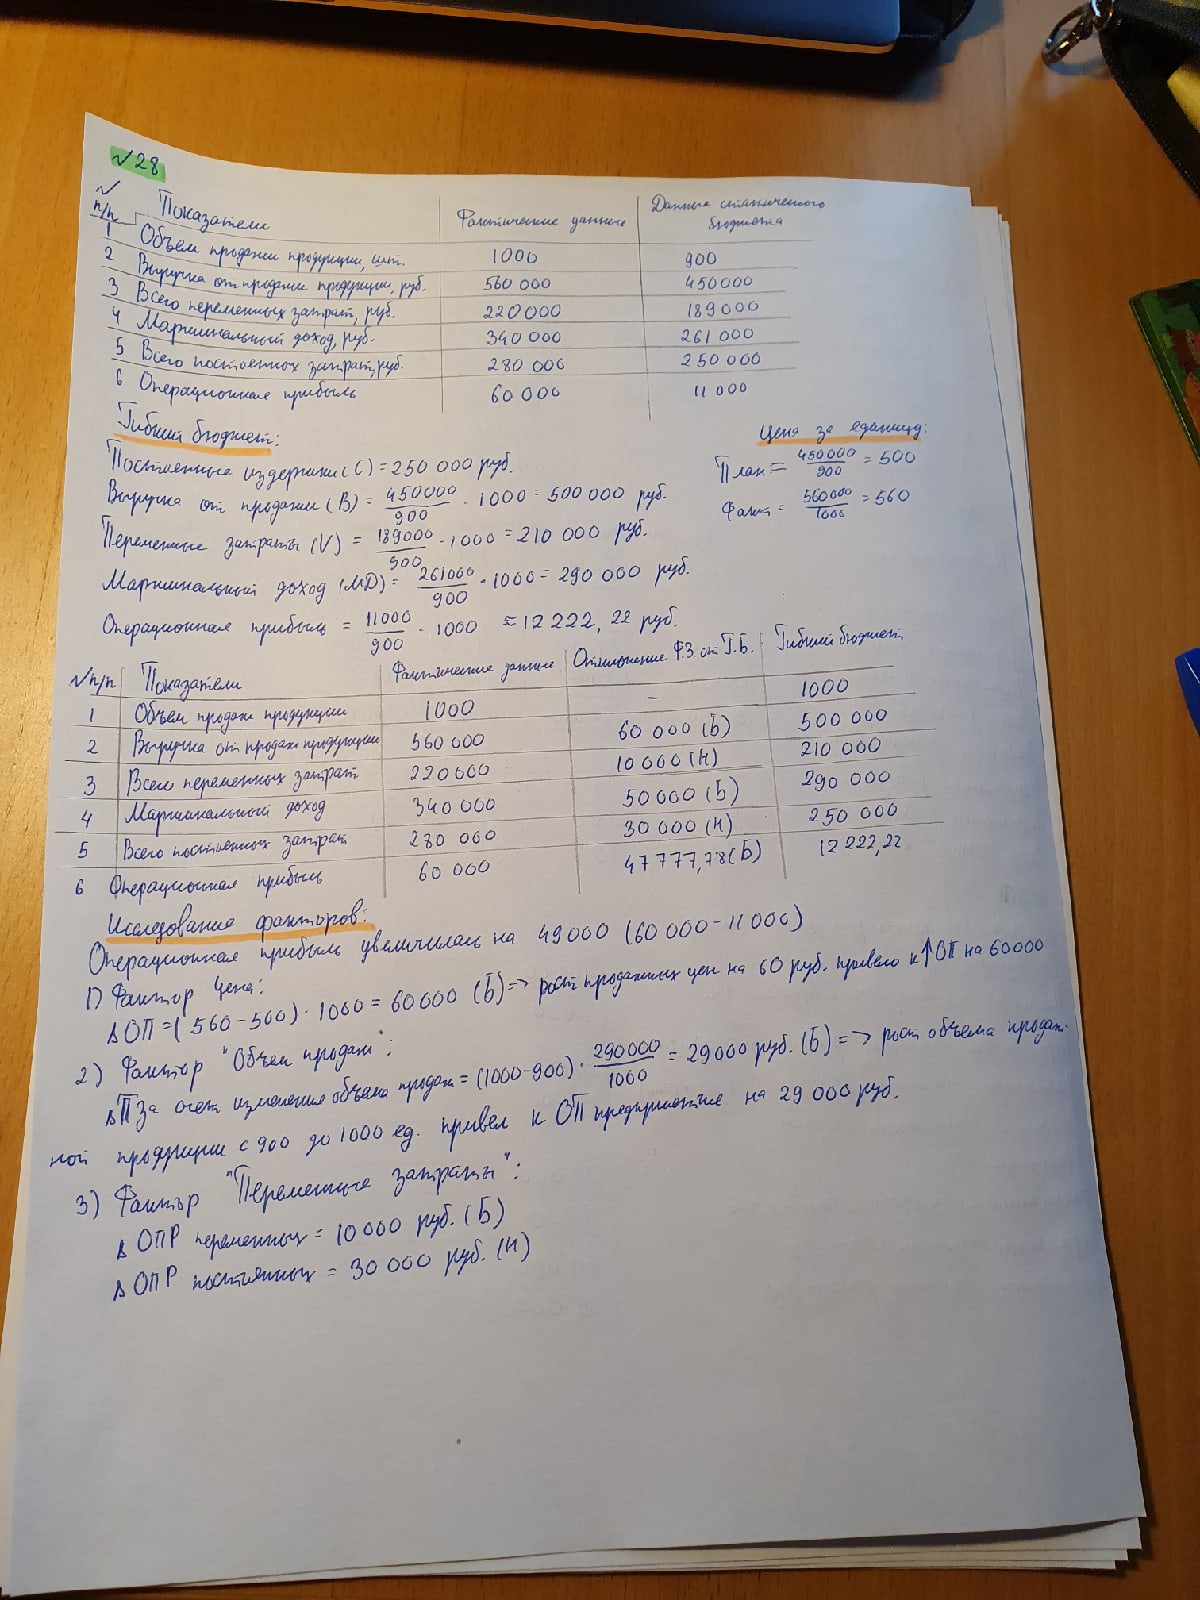 №28
№ п/п Показатели Фактические данные Данные статического бюджета
1 Объем продажи продукции, шт. 1000 900
2 Выручка от продажи продукции, руб. 560 000 450000
3 Всего переменных затрат, руб. 220000 189000
4 Маржинальный доход, руб. 340 000 261 000
5 Всего постоянных затрат, руб. 280 000 250 000
6 Операционная прибыль 60 000 11 000
Гибкий бюджет:
Цена за единицу:
Постоянные издержки (С) = 250 000 руб.
План = 450000/900 = 500
Выручка от продажи (В) = 450000/900 · 1000 = 500 000 руб.
Факт = 560000/1000 = 560
Переменные затраты (V) = 189000/900 · 1000 = 210 000 руб.
Маржинальный доход (МД) = 261000/900 · 1000 = 290 000 руб.
Операционная прибыль = 11000/900 · 1000 = 12 222, 22 руб.
№ п/п Показатели Фактические данные Отклонение Ф.З. от Г.Б. Гибкий бюджет
1 Объем продаж продукции 1000 - 1000
2 Выручка от продаж продукции 560 000 60 000 (Б) 500 000
3 Всего переменных затрат 220 000 10 000 (Н) 210 000
4 Маржинальный доход 340 000 50 000 (Б) 290 000
5 Всего постоянных затрат 280 000 30 000 (Н) 250 000
6 Операционная прибыль 60 000 47 777,78 (Б) 12 222,22
Исследование факторов:
Операционная прибыль увеличилась на 49 000 (60 000 - 11 000)
1) Фактор Цена:
Δ ОП = (560 - 500) · 1000 = 60 000 (Б) => рост продажных цен на 60 руб. привело к ↑ ОП на 60000
2) Фактор "Объем продаж":
ΔП за счет изменения объема продаж = (1000-900) · 290000/1000 = 29000 руб. (Б) => рост объема продан-
ной продукции с 900 до 1000 ед. привел к ОП предприятие на 29 000 руб.
3) Фактор "Переменные затраты":
Δ ОПР переменных = 10 000 руб. (Б)
Δ ОПР постоянных = 30 000 руб. (Н)